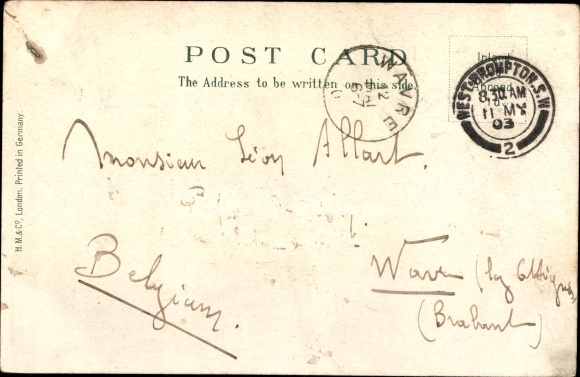 POST CARD
The Address to be written on this side.
Inland
Abroad
WEST BROMPTON. S.W
8.30 AM
11 MY
03
2
WAVRE
12
MAI
6-7
Monsieur Léon Allart.
Belgium.
Wavre (by Ottignies)
(Brabant)
H.M.& Co., London. Printed in Germany.